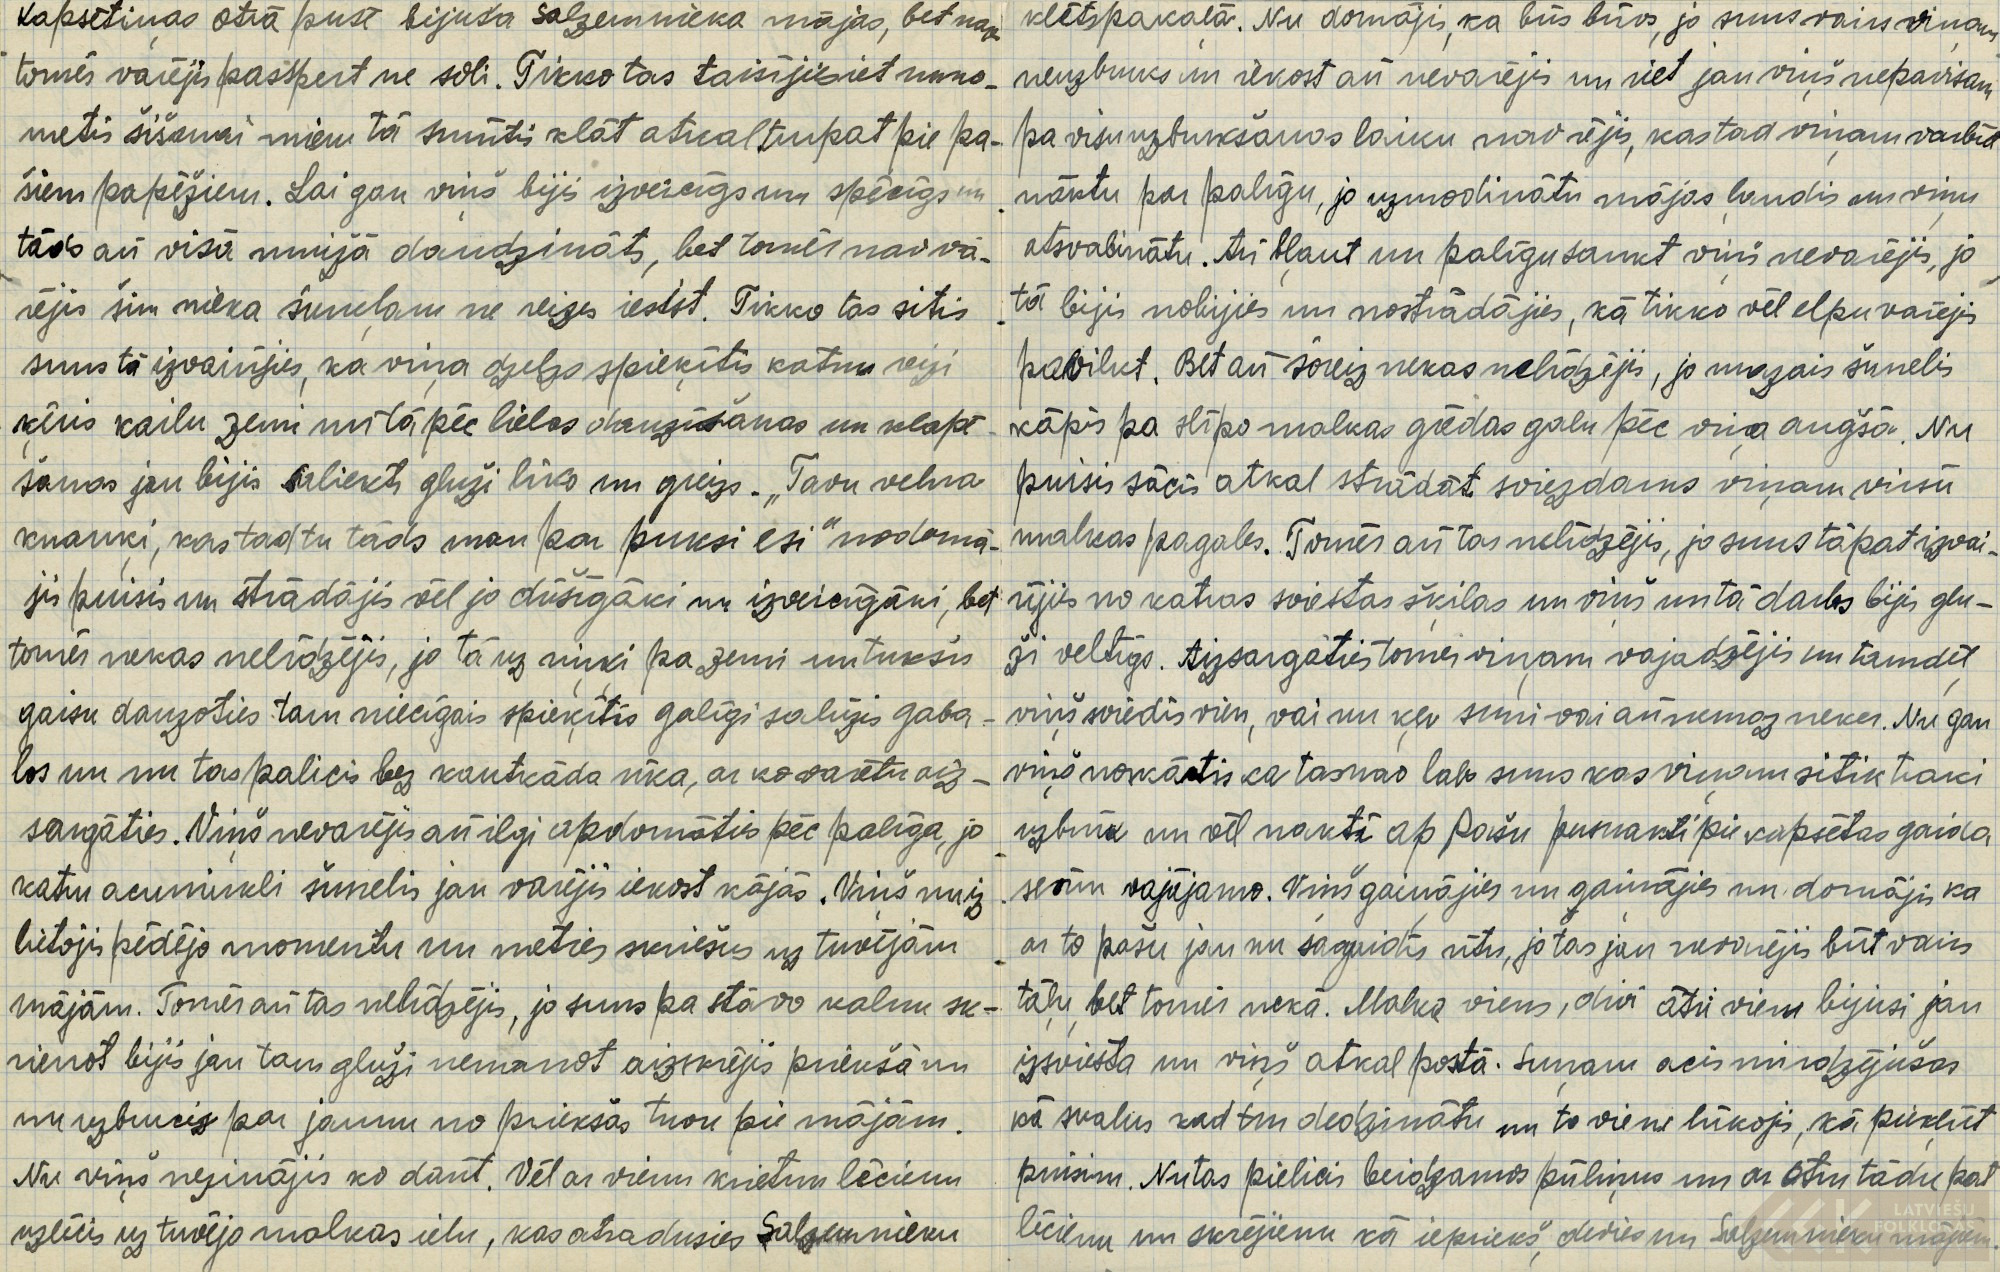 kapsētiņas otrā pusē bijuša Salzemnieka mājas, bet nav
tomēr varējis paspert ne soli. Tikko tas taisījies iet nuno-
metis šišanai mieru tā sunītis klāt atkal turpat pie pa-
šiem papēžiem. Lai gan viņš bijis izveicīgs un spēcīgs un
tāds arī visā muižā daudzināts, bet tomēr nav va-
rējis šim nieka šunelam ne reizes iesist. Tikko tas sitis
suns tā izvairījies, ka viņa dzelzs spieķītis katru reizi
ķēris kailu zemi un tā pēc lielas dauzīšanas un klapē-
šanas jau bijis saliekts gluži līks un greizs. „Tavu velna
knauķi, kas tad tu tāds man par puksi esi” nodomā-
jis puisis un strādājis vēl jo dūšīgāki un izveicīgāki, bet
tomēr nekas nelīdzējis, jo tā uz riņķi pa zemi un tukšu
gaisu dauzoties tam niecīgais spieķītis galīgi salūzis gaba-
los un nu tas palicis bez kautkāda rīka, ar ko varētu aiz-
sargāties. Viņš nevarējis arī ilgi apdomāties pēc palīga, jo
katru acumirkli šunelis jau varējis iekost kājās. Viņš nu iz
lietojis pēdējo momentu un meties skriešus uz tuvējām
mājām. Tomēr arī tas nelīdzējis, jo suns pa stāvo kalnu sk-
rienot bijis jau tam gluži nemanot aizskrējis priekšā un
nu uzbrucis par jaunu no priekšas tuvu pie mājām.
Nu viņš nezinājis ko darīt. Vēl ar vienu krietnu lēcienu
uzlēcis uz tuvējo malkas ielu, kas atradusies Salzemnieku
klētspakaļā. Nu domājis, ka būs būvs, jo suns vairs viņam
neuzbruks un iekost arī nevarējis un riet jau viņš nepavisam
pa visu uzbrukšanas laiku nav rējis, kas tad viņam varbūt
nāktu par palīgu, jo uzmodinātu mājas ļaudis un viņu
atsvabinātu. Arī bļaut un palīgu saukt viņš nevarējis, jo
tā bijis nobijies un nostrādājies, kā tikko vēl elpu varējis
pavilkt. Bet arī šoreiz nekas nelīdzējis, jo mazais šunelis
kāpis pa slīpo malkas grēdas galu pēc viņa augšā. Nu
puisis sācis atkal strādāt sviezdams viņam virsū
malkas pagales. Tomēr arī tas nelīdzējis, jo suns tāpat izvai-
rījies no katras sviestas šķilas un viņš un tā darbs bijis glu-
ži veltīgs. Aizsargāties tomēr viņam vajadzējis un tamdēļ
viņš sviedis vien, vai nu ķer suni vai arī nemaz neker. Nu gan
viņš norkārtis ka tas nav labs suns kas viņam sitik traki
uzbrūk un vēl naktī ap pašu pusnakti pie kapsētas gaida
sevim vajājamo. Viņš gaiņājies un gaiņājies un domājis ka
ar to pašu jau nu sagaidīs rītu, jo tas jau nevarējis būt vairs
tālu, bet tomēr nekā. Malka viens, divi ātri vien bijusi jau
izsviesta un viņš atkal postā. Suņam acis mirdzējušas
kā svalus kad tur dedzinātu un to vien lūkojis, kā piekļūt
puisim. Nu tas pielicis beidzamos pūliņus un ar otru tādu pat
lēcienu un skrējienu kā iepriekš, devies un Salzemnieku mājām.
LATVIEŠU
FOLKLORAS